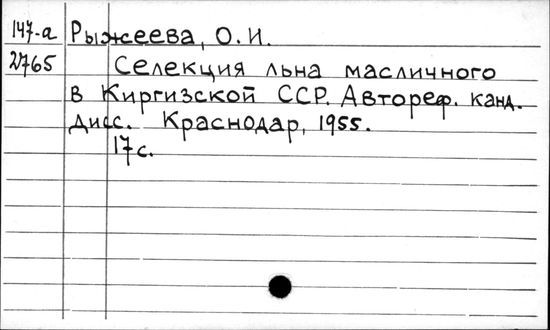 147-а Рыжеева, О.И.
2765 Селекция льна масличного
в Киргизской ССР. Автореф. канд.
дисс. Краснодар, 1955.
17с.